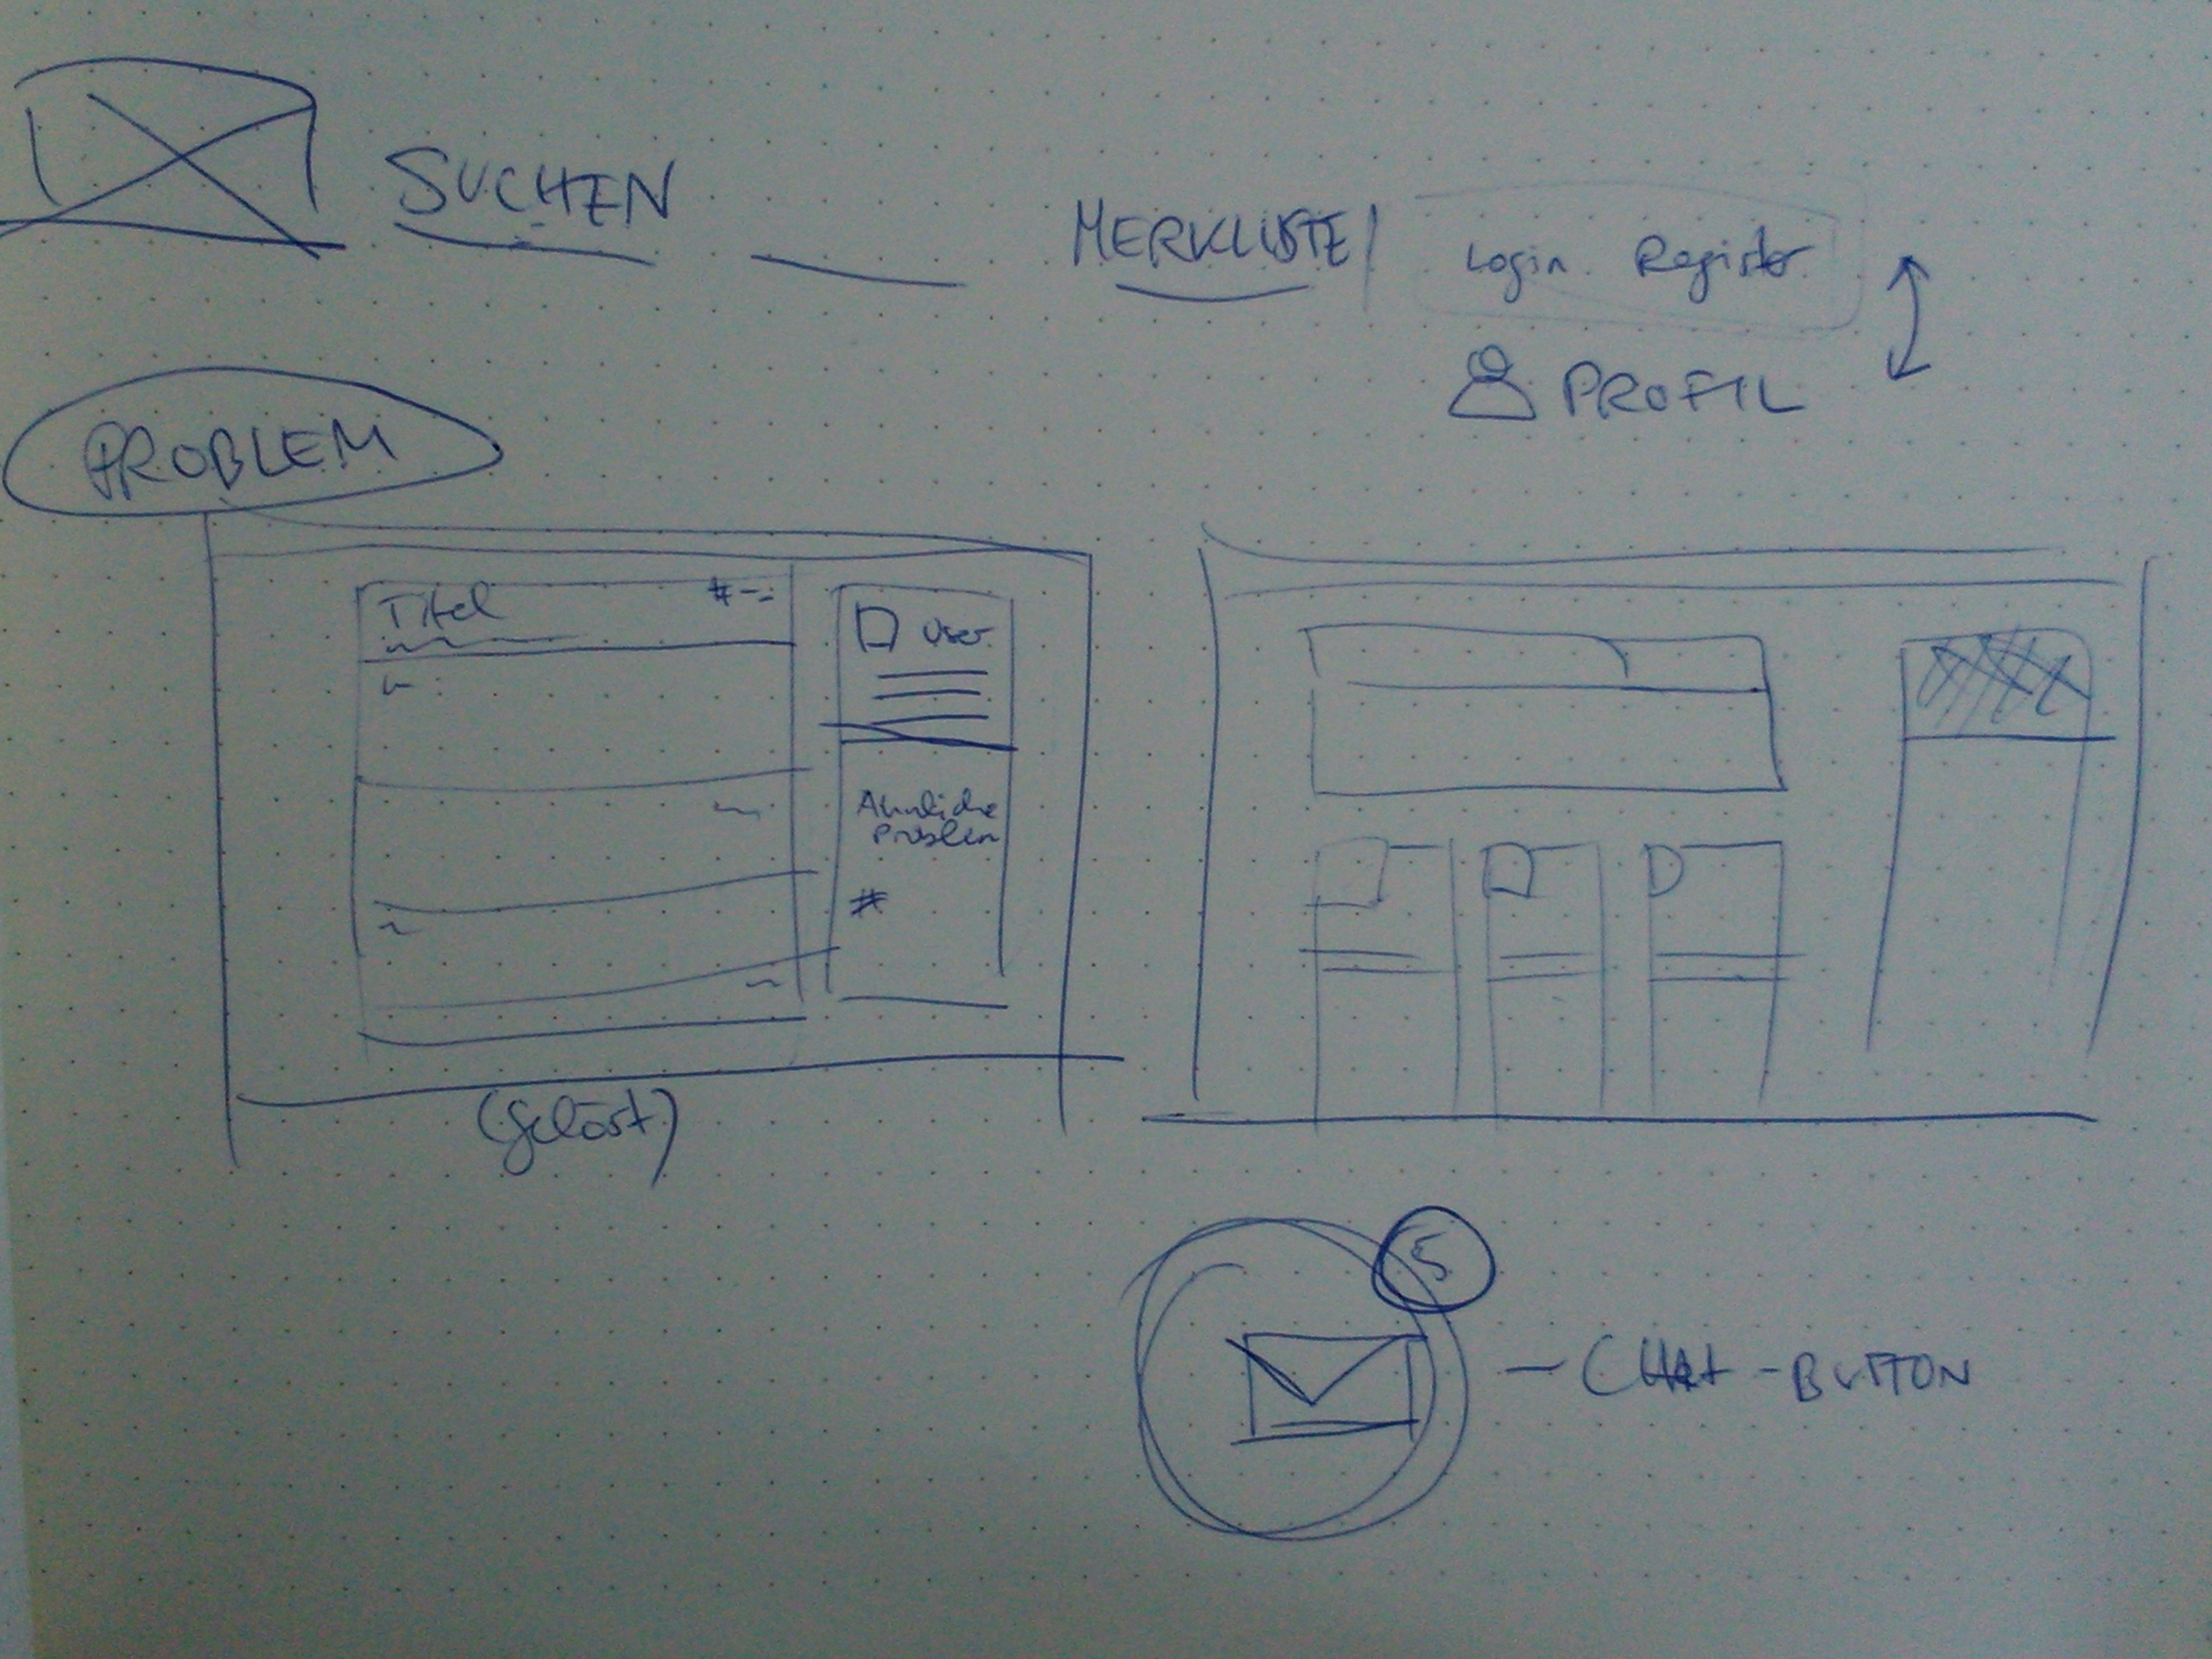 SUCHEN
MERKLISTE
Login Register
PROFIL
PROBLEM
Titel #
User
Ähnliche
Problem
#
(gelöst)
5
- CHAT-BUTTON